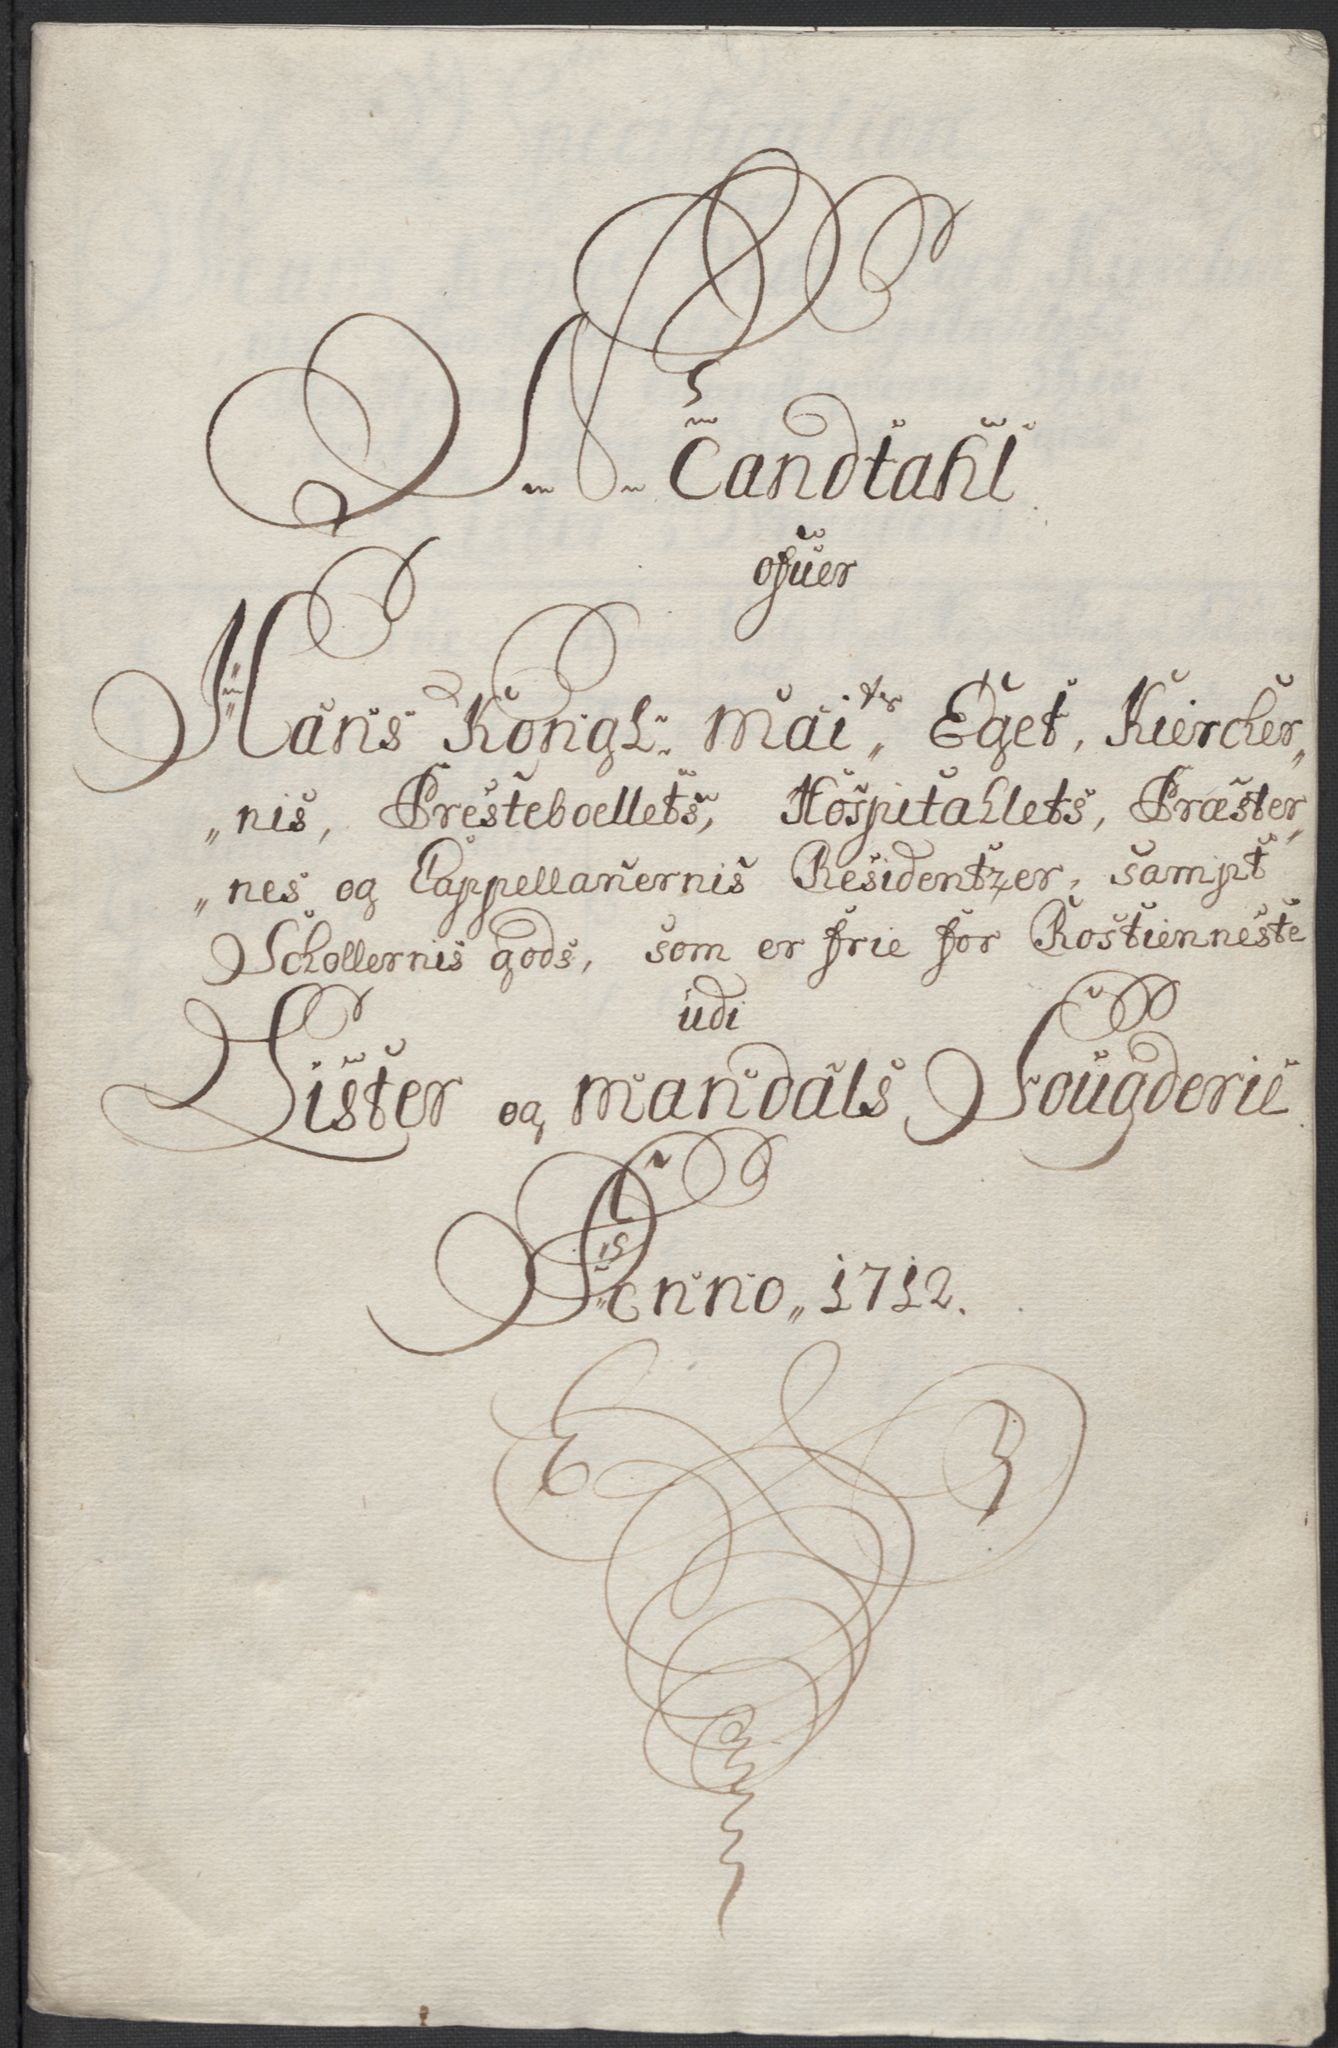 Mandtahl
ofuer
Hans Kongl: Mai,,ts Eget, Kiercher,,
,,nis, Presteboellets, Hospitahlets, Præster,,
,,nes og Cappellanernis Residentzer, sampt
Schollernis gods, som er frie for Rostienneste
udi
Lister og Mandals Fougderie
Anno,, 1712.